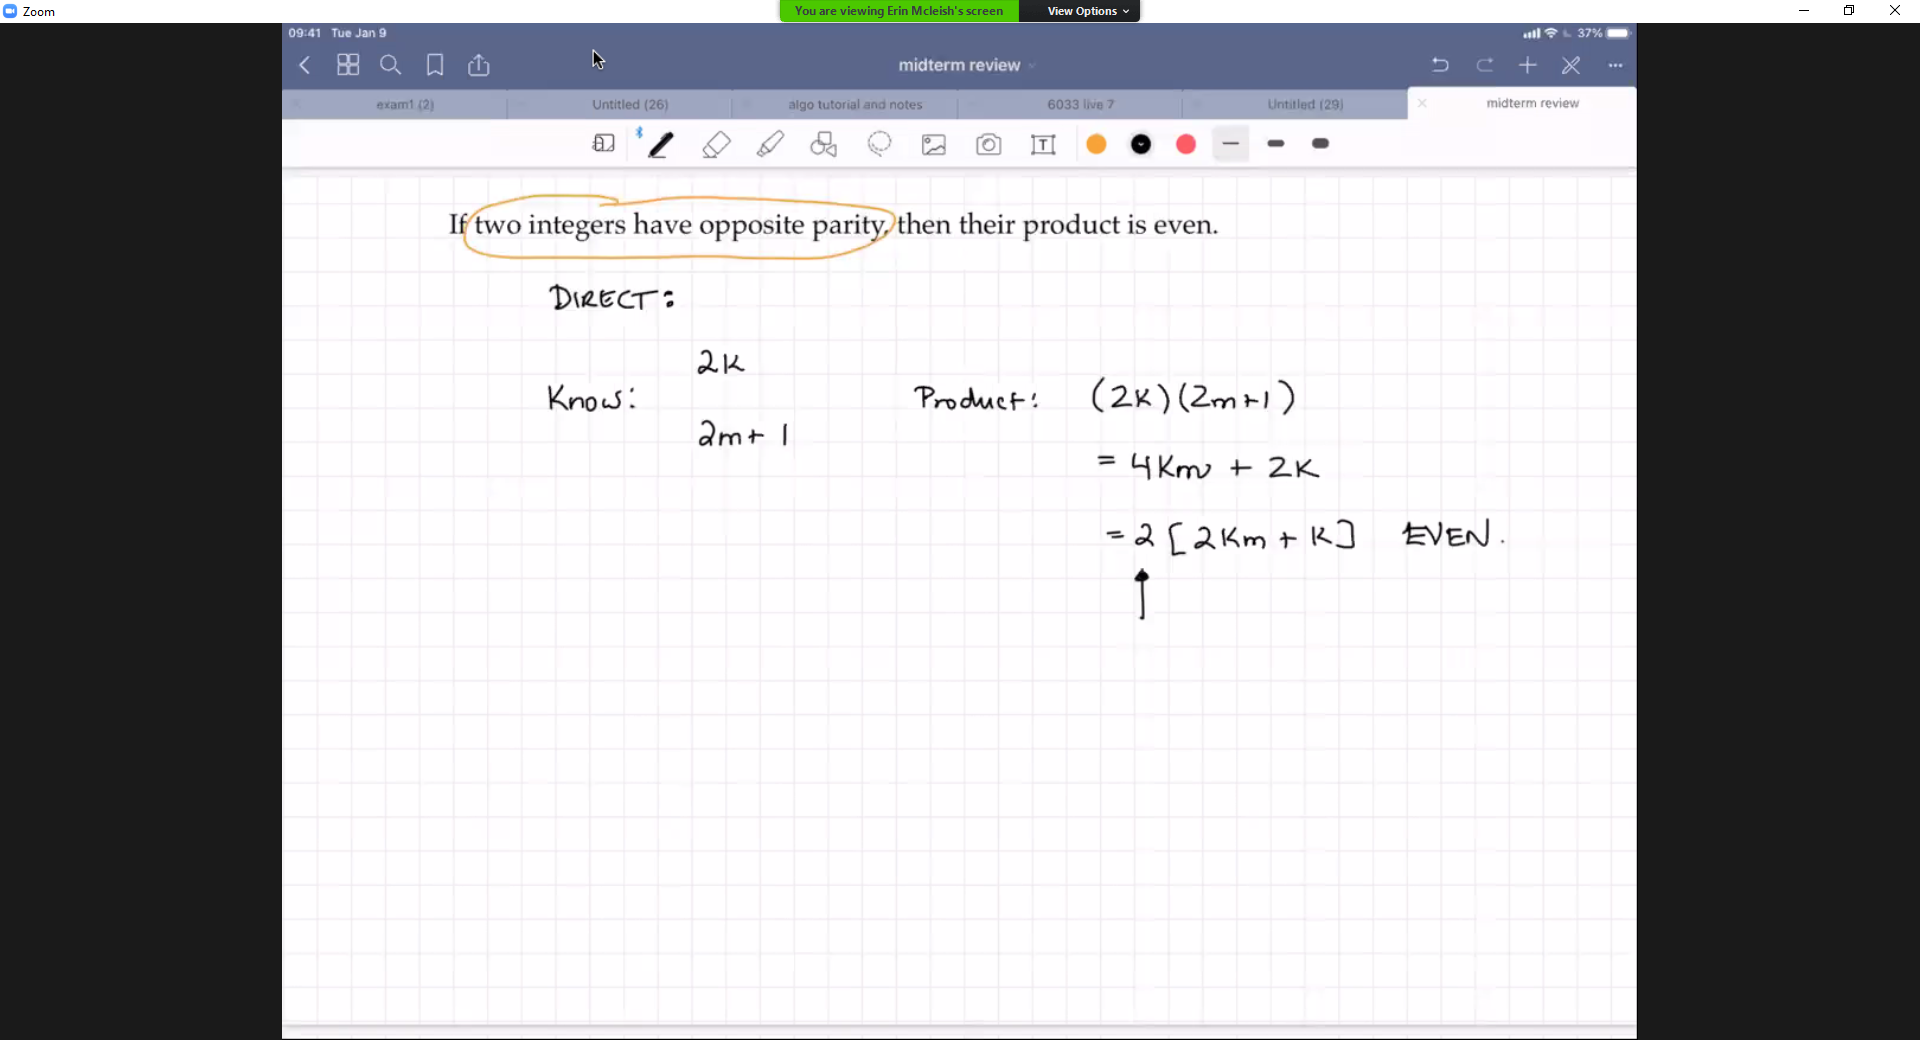 Zoom
You are viewing Erin Mcleish's screen View Options
09:41 Tue Jan 9 37%
midterm review
exam1 (2) Untitled (26) algo tutorial and notes 6033 live 7 Untitled (29) midterm review
If two integers have opposite parity, then their product is even.
DIRECT:
2k
Know: Product: (2k)(2m+1)
2m+ 1
= 4km + 2k
= 2 [2km + k] EVEN.